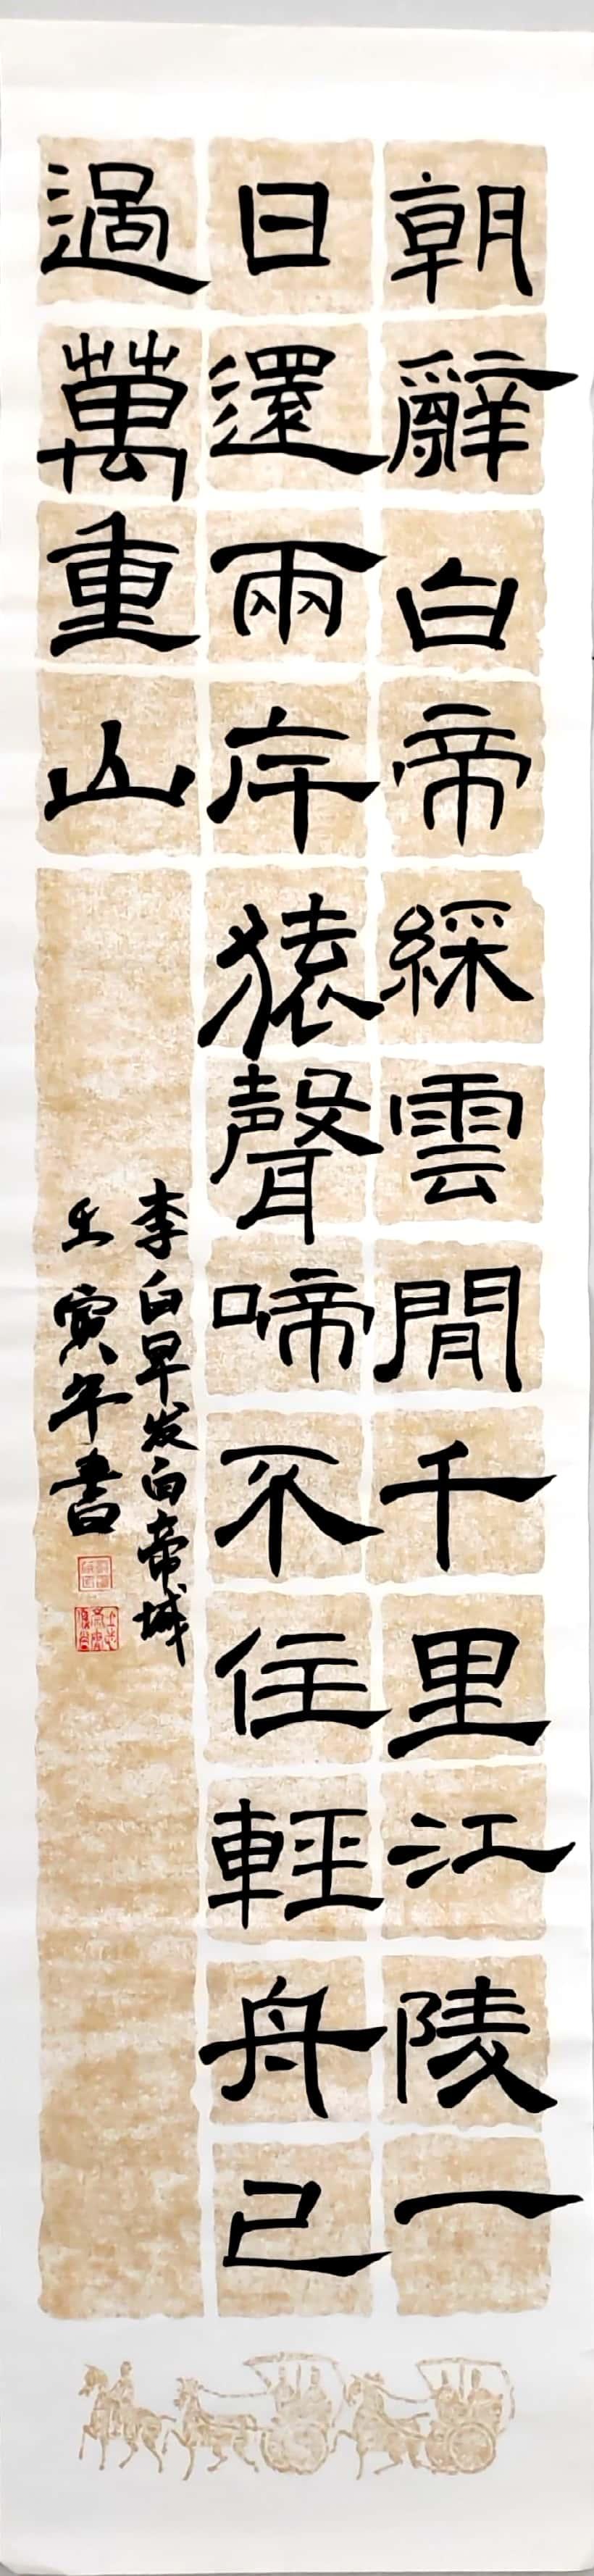 朝辭白帝綵雲間千里江陵一
日還兩岸猿聲啼不住輕舟已
過萬重山
李白早发白帝城
壬寅年書